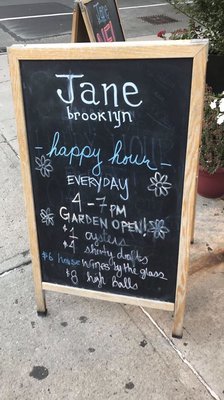 Jane
brooklyn
Jane
brooklyn
- happy hour -
EVERYDAY
4-7PM
GARDEN OPEN!
$1 oysters
$4 shorty drafts
$6 house wines by the glass
$8 high balls